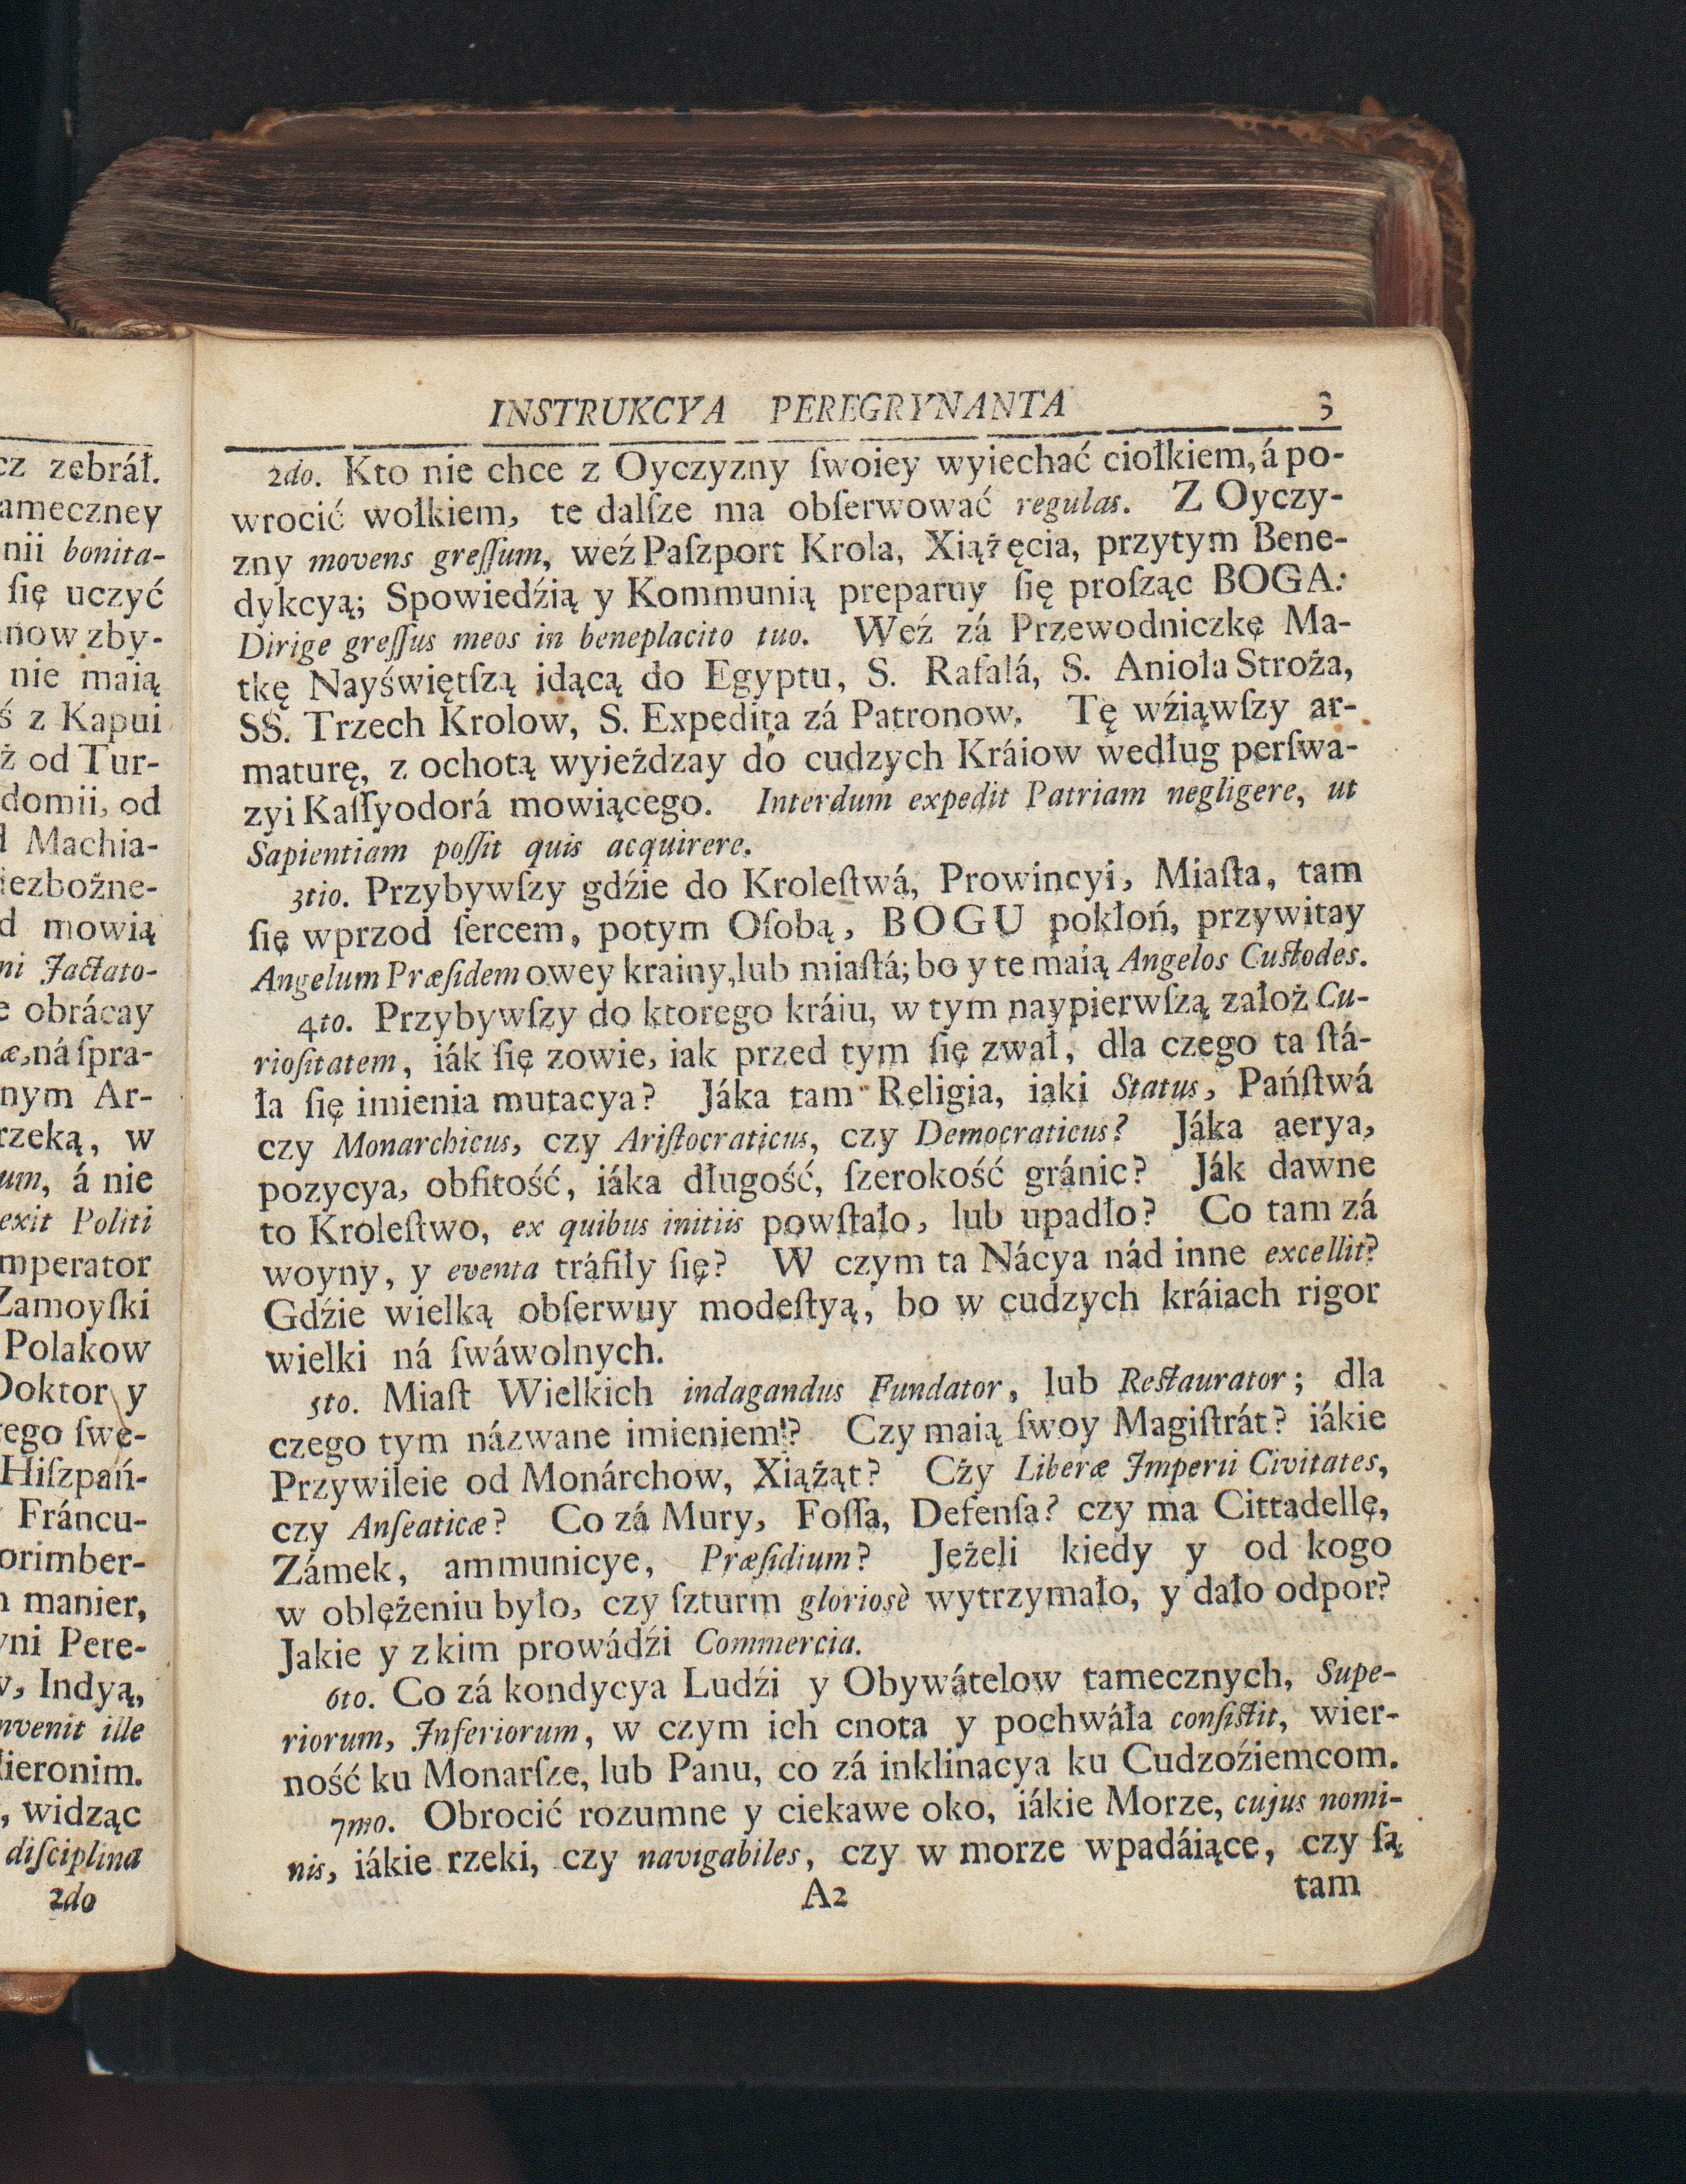 cz zebráł.
ameczney
nii bonita-
ſię uczyć
now zby-
nie maią
ś z Kapui
ż od Tur-
domii, od
Machia-
iezbożne-
d mowią
ni Jactato-
e obrácay
æ, ná ſpra-
nym Ar-
rzeką, w
um, á nie
exit Politi
mperator
Zamoyſki
Polakow
Doktor y
ego ſwe-
Hiſzpań-
Fráncu-
orimber-
manier,
yni Pere-
, Indyą,
nvenit ille
Hieronim.
, widząc
diſciplina
2do
INSTRUKCYA PEREGRYNANTA 3
2do. Kto nie chce z Oyczyzny ſwoiey wyiechać ciołkiem, á po-
wrocić wołkiem, te dalſze ma obſerwować regulas. Z Oyczy-
zny movens greſſum, weź Paſzport Krola, Xiążęcia, przytym Bene-
dykcyą; Spowiedźią y Kommunią preparuy ſię proſząc BOGA:
Dirige greſſus meos in beneplacito tuo. Weź zá Przewodniczkę Ma-
tkę Nayświętſzą idącą do Egyptu, S. Rafalá, S. Anioła Stroża,
SS. Trzech Krolow, S. Expedita zá Patronow. Tę wźiąwſzy ar-
maturę, z ochotą wyieżdzay do cudzych Kráiow według perſwa-
zyi Kaſſyodorá mowiącego. Interdum expedit Patriam negligere, ut
Sapientiam poſſit quis acquirere.
3tio. Przybywſzy gdźie do Kroleſtwá, Prowincyi, Miaſta, tam
ſię wprzod ſercem, potym Oſobą, BOGU pokłoń, przywitay
Angelum Præſidem owey krainy, lub miaſtá; bo y te maią Angelos Cuſtodes.
4to. Przybywſzy do ktorego kráiu, w tym naypierwſzą założ Cu-
rioſitatem, iák ſię zowie, iak przed tym ſię zwał, dla czego ta ſtá-
ła ſię imienia mutacya? Jáka tam Religia, iaki Status, Páńſtwá
czy Monarchicus, czy Ariſtocraticus, czy Democraticus? Jáka aerya,
pozycya, obfitość, iáka długość, ſzerokość gránic? Ják dawne
to Kroleſtwo, ex quibus initiis powſtało, lub upadło? Co tam zá
woyny, y eventa tráfiły ſię? W czym ta Nácya nád inne excellit?
Gdźie wielką obſerwuy modeſtyą, bo w cudzych kráiach rigor
wielki ná ſwáwolnych.
5to. Miaſt Wielkich indagandus Fundator, lub Reſtaurator; dla
czego tym názwane imieniem? Czy maią ſwoy Magiſtrát? iákie
Przywileie od Monárchow, Xiążąt? Cży Liberæ Imperii Civitates,
czy Anſeaticæ? Co zá Mury, Foſſa, Defenſa? czy ma Cittadellę,
Zámek, ammunicye, Præſidium? Jeżeli kiedy y od kogo
w oblężeniu było, czy ſzturm gloriosè wytrzymało, y dało odpor?
Jakie y z kim prowádźi Commercia.
6to. Co zá kondycya Ludźi y Obywátelow tamecznych, Supe-
riorum, Inferiorum, w czym ich cnota y pochwáła conſiſtit, wier-
ność ku Monarſze, lub Panu, co zá inklinacya ku Cudzoźiemcom.
7mo. Obrocić rozumne y ciekawe oko, iákie Morze, cujus nomi-
nis, iákie rzeki, czy navigabiles, czy w morze wpadáiące, czy ſą
A2 tam